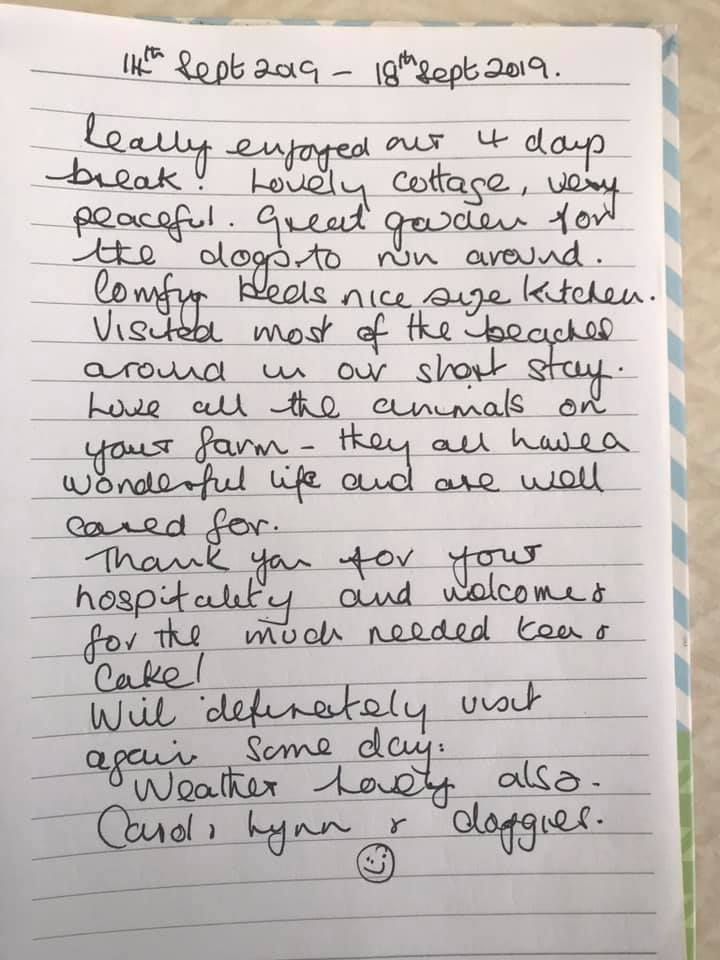 14th Sept 2019 – 18th Sept 2019.
Really enjoyed our 4 day
break. Lovely cottage, very
peaceful. Great garden for
the dogs to run around.
Comfy beds nice size kitchen.
Visited most of the beaches
around in our short stay.
Love all the animals on
your farm – they all have a
wonderful life and are well
cared for.
Thank you for your
hospitality and welcome &
for the much needed tea &
Cake!
Will definetely visit
again some day.
Weather lovely also.
Carol, Lynn & doggies.